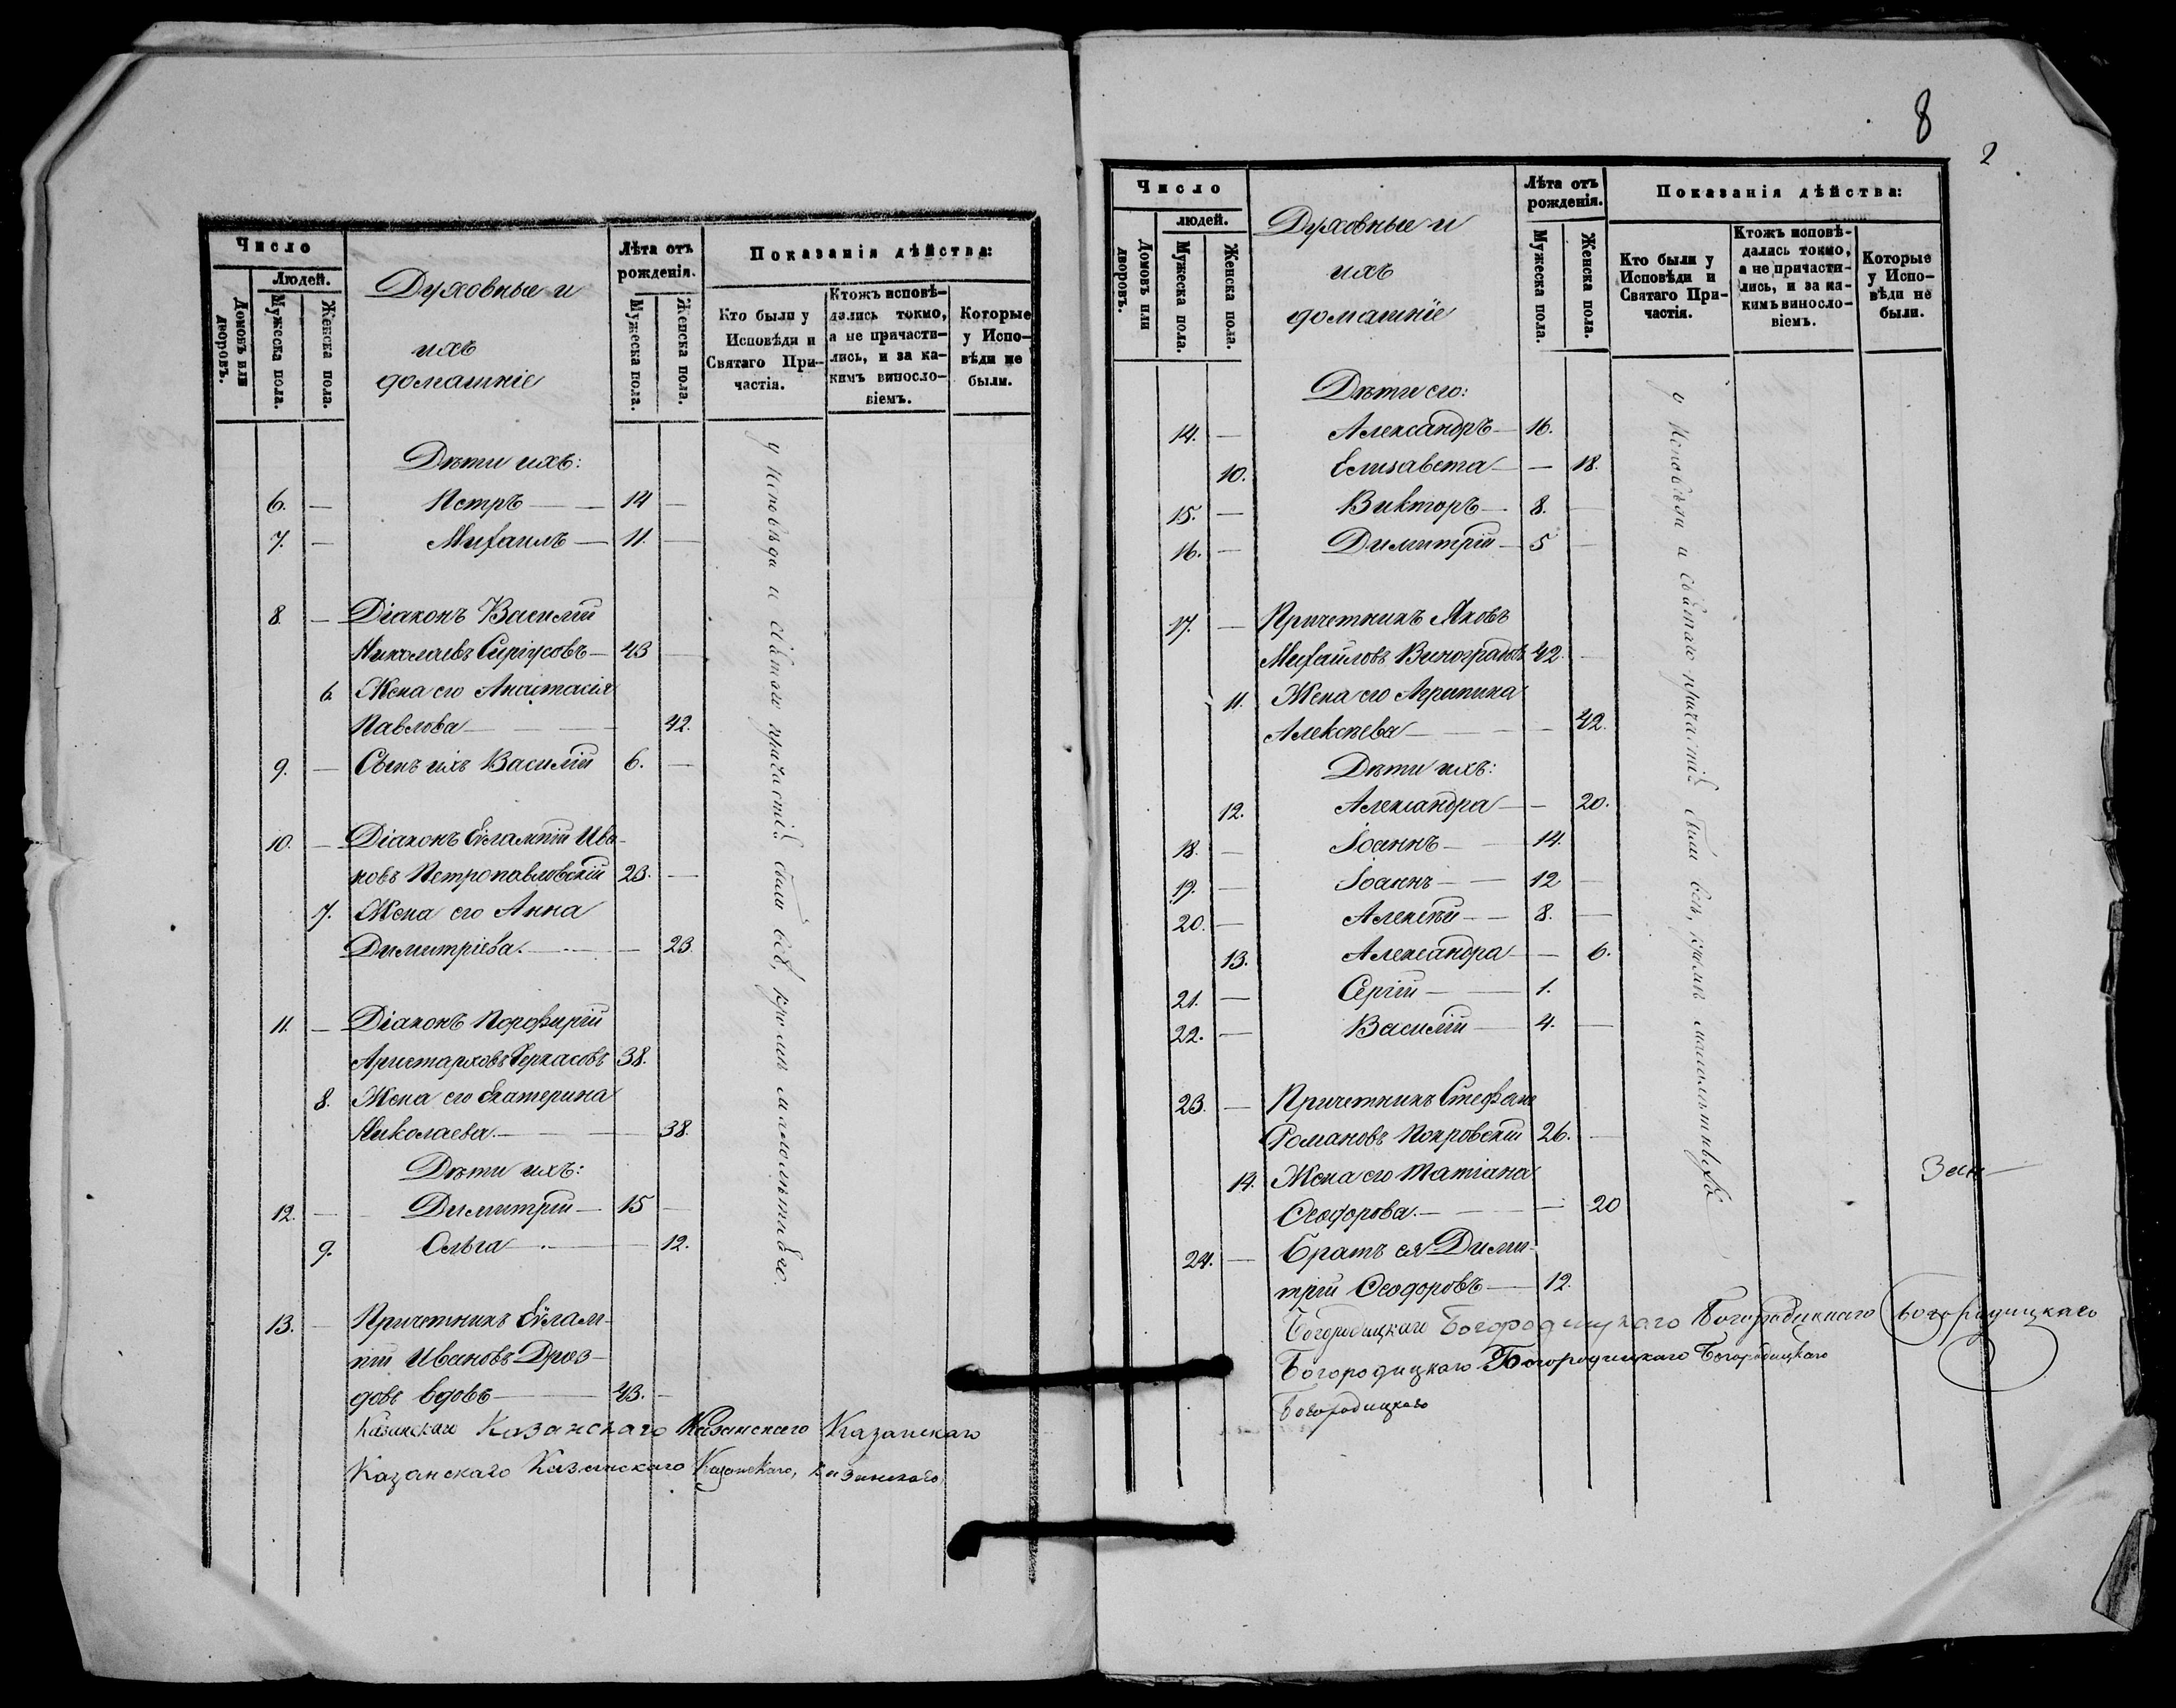 Число
Людей.
Домовъ или дворовъ.
Мужеска пола.
Женска пола.
Духовные и
ихъ
домашніе
Лѣта отъ
рожденія.
Мужеска пола.
Женска пола.
Показанія дѣйства:
Кто были у
Исповѣди и
Святаго При-
частія.
Ктожъ исповѣ-
дались токмо,
а не причасти-
лись, и за ка-
кимъ винοсло-
віемъ.
Которые
у Испо-
вѣди не
были.
у Исповѣди и святаго причастія были всѣ, кромѣ малолѣтняго
Дѣти ихъ:
6. — Петръ — 14 —
7. — Михаилъ — 11. —
8. — Діаконъ Василій
Николаевъ Сиріусовъ — 43 —
6. Жена его Анастасія
Павлова — 42.
9. — Сынъ ихъ Василій 6. —
10. — Діаконъ Евлампій Ива-
новъ Петропавловскій 23. —
7. Жена его Анна
Димитріева. — 23
11. — Діаконъ Порфирій
Аристарховъ Черкасовъ 38.
8. Жена его Екатерина
Николаева. — 38.
Дѣти ихъ:
12. — Димитрій — 15 —
9. Ольга — 12.
13. — Причетникъ Евлам-
пій Ивановъ Дроз-
довъ вдовъ — 43. —
Казанскаго Казанскаго Казанскаго Казанскаго
Казанскаго Казанскаго Казанскаго, Казанскаго
8
2
Число
людей.
Домовъ или дворовъ.
Мужеска пола.
Женска пола.
Духовные и
ихъ
домашніе
Лѣта отъ
рожденія.
Мужеска пола.
Женска пола.
Показанія дѣйства:
Кто были у
Исповѣди и
Святаго При-
частія.
Ктожъ исповѣ-
дались токмо,
а не причасти-
лись, и за ка-
кимъ винοсло-
віемъ.
Которые
у Испо-
вѣди не
были.
у Исповѣди и святаго причастія были всѣ, кромѣ малолѣтныхъ
Дѣти его:
14. — Александръ — 16.
10. Елисавета — — 18.
15. — Викторъ — 8. —
16. — Димитрій — 5 —
17. — Причетникъ Яковъ
Михайловъ Виноградовъ 42. —
11. Жена его Агрипина
Алексѣева — — 42.
Дѣти ихъ:
12. Александра — — 20.
18. — Іоаннъ — 14.
19. — Іоаннъ — 12 —
20. — Алексѣй — 8. —
13. Александра — — 6.
21. — Сергій — 1.
22. — Василій — 4. —
23. — Причетникъ Стефанъ
Романовъ Покровскій 26. —
14. Жена его Татіана
Ѳеодорова. — — 20
24. — Братъ ея Дими-
трій Ѳеодоровъ — 12.
Богородицкаго Богородицкаго Богородицкаго Богородицкаго
Богородицкаго Богородицкаго Богородицкаго
Богородицкаго